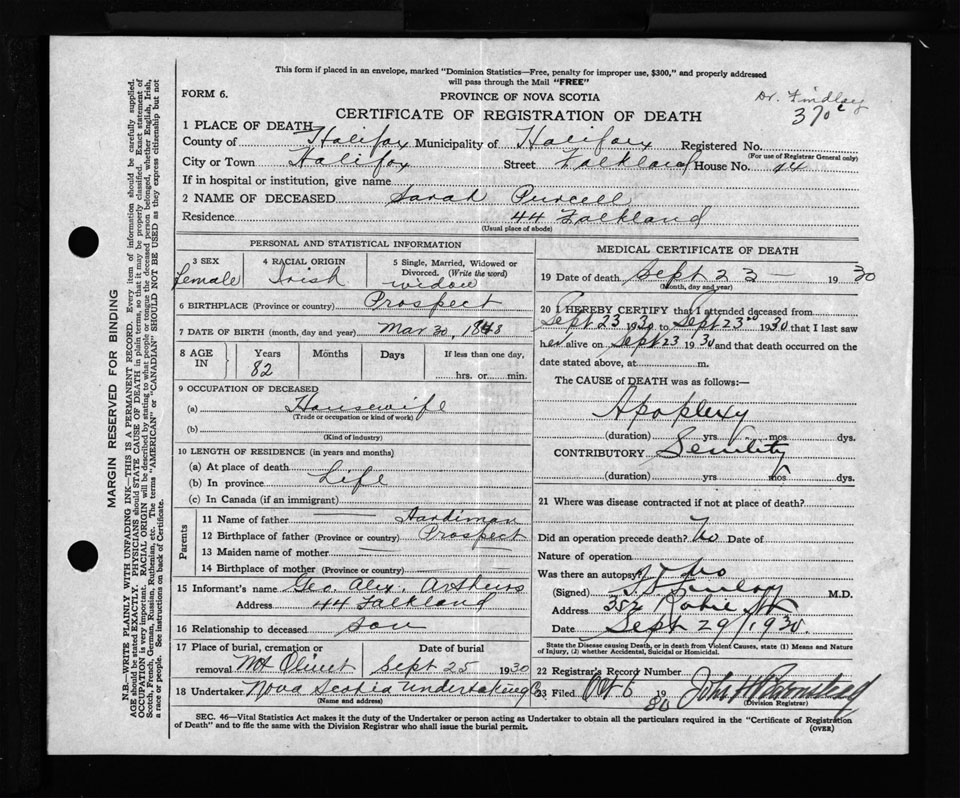 This form if placed in an envelope, marked "Dominion Statistics—Free, penalty for improper use, $300," and properly addressed
will pass through the Mail "FREE"
FORM 6.
PROVINCE OF NOVA SCOTIA
Dr. Findlay
CERTIFICATE OF REGISTRATION OF DEATH
370
1 PLACE OF DEATH
County of Halifax Municipality of Halifax Registered No.
(For use of Registrar General only)
City or Town Halifax Street Falkland House No. 44
If in hospital or institution, give name
2 NAME OF DECEASED Sarah Purcell
Residence 44 Falkland
(Usual place of abode)
PERSONAL AND STATISTICAL INFORMATION
3 SEX female
4 RACIAL ORIGIN Irish
5 Single, Married, Widowed or
Divorced. (Write the word)
widow
6 BIRTHPLACE (Province or country) Prospect
7 DATE OF BIRTH (month, day and year) Mar 30, 1848
8 AGE IN Years 82 Months Days If less than one day,
hrs. or min.
9 OCCUPATION OF DECEASED
(a) Housewife
(Trade or occupation or kind of work)
(b)
(Kind of industry)
10 LENGTH OF RESIDENCE (in years and months)
(a) At place of death
(b) In province Life
(c) In Canada (if an immigrant)
Parents
11 Name of father Hardiman
12 Birthplace of father (Province or country) Prospect
13 Maiden name of mother
14 Birthplace of mother (Province or country)
15 Informant's name Geo Alex.
Address 44 Falkland
16 Relationship to deceased son
17 Place of burial, cremation or Date of burial
removal Mt Olivet Sept 25 1930
18 Undertaker Nova Scotia Undertaking
(Name and address)
MEDICAL CERTIFICATE OF DEATH
19 Date of death Sept 23 – 1930
(Month, day and year)
20 I HEREBY CERTIFY that I attended deceased from
Sept 23 1930 to Sept 23 1930 that I last saw
her alive on Sept 23 1930 and that death occurred on the
date stated above, at m.
The CAUSE of DEATH was as follows:—
Apoplexy
(duration) yrs mos dys.
CONTRIBUTORY Senility
(duration) yrs mos dys.
21 Where was disease contracted if not at place of death?
Did an operation precede death? No Date of
Nature of operation
Was there an autopsy? No
(Signed) M.D.
Address 352 Robie St
Date Sept 29/1930.
State the Disease causing Death, or in death from Violent Causes, state (1) Means and Nature
of Injury, (2) whether Accidental, Suicidal or Homicidal.
22 Registrar's Record Number
23 Filed Oct 6 19 30 John H
(Division Registrar)
SEC. 46—Vital Statistics Act makes it the duty of the Undertaker or person acting as Undertaker to obtain all the particulars required in the "Certificate of Registration
of Death" and to file the same with the Division Registrar who shall issue the burial permit.
(OVER)
MARGIN RESERVED FOR BINDING
N.B.—WRITE PLAINLY WITH UNFADING INK—THIS IS A PERMANENT RECORD. Every item of information should be carefully supplied.
AGE should be stated EXACTLY. PHYSICIANS should STATE CAUSE OF DEATH in plain terms, so that it may be properly classified. Exact statement of
OCCUPATION is very important. RACIAL ORIGIN will be described by stating to what people or tongue the deceased person belonged, whether English, Irish,
Scotch, French, German, Russian, Ruthenian, etc. The terms "AMERICAN" or "CANADIAN" SHOULD NOT BE USED as they express citizenship but not
a race or people. See instructions on back of Certificate.